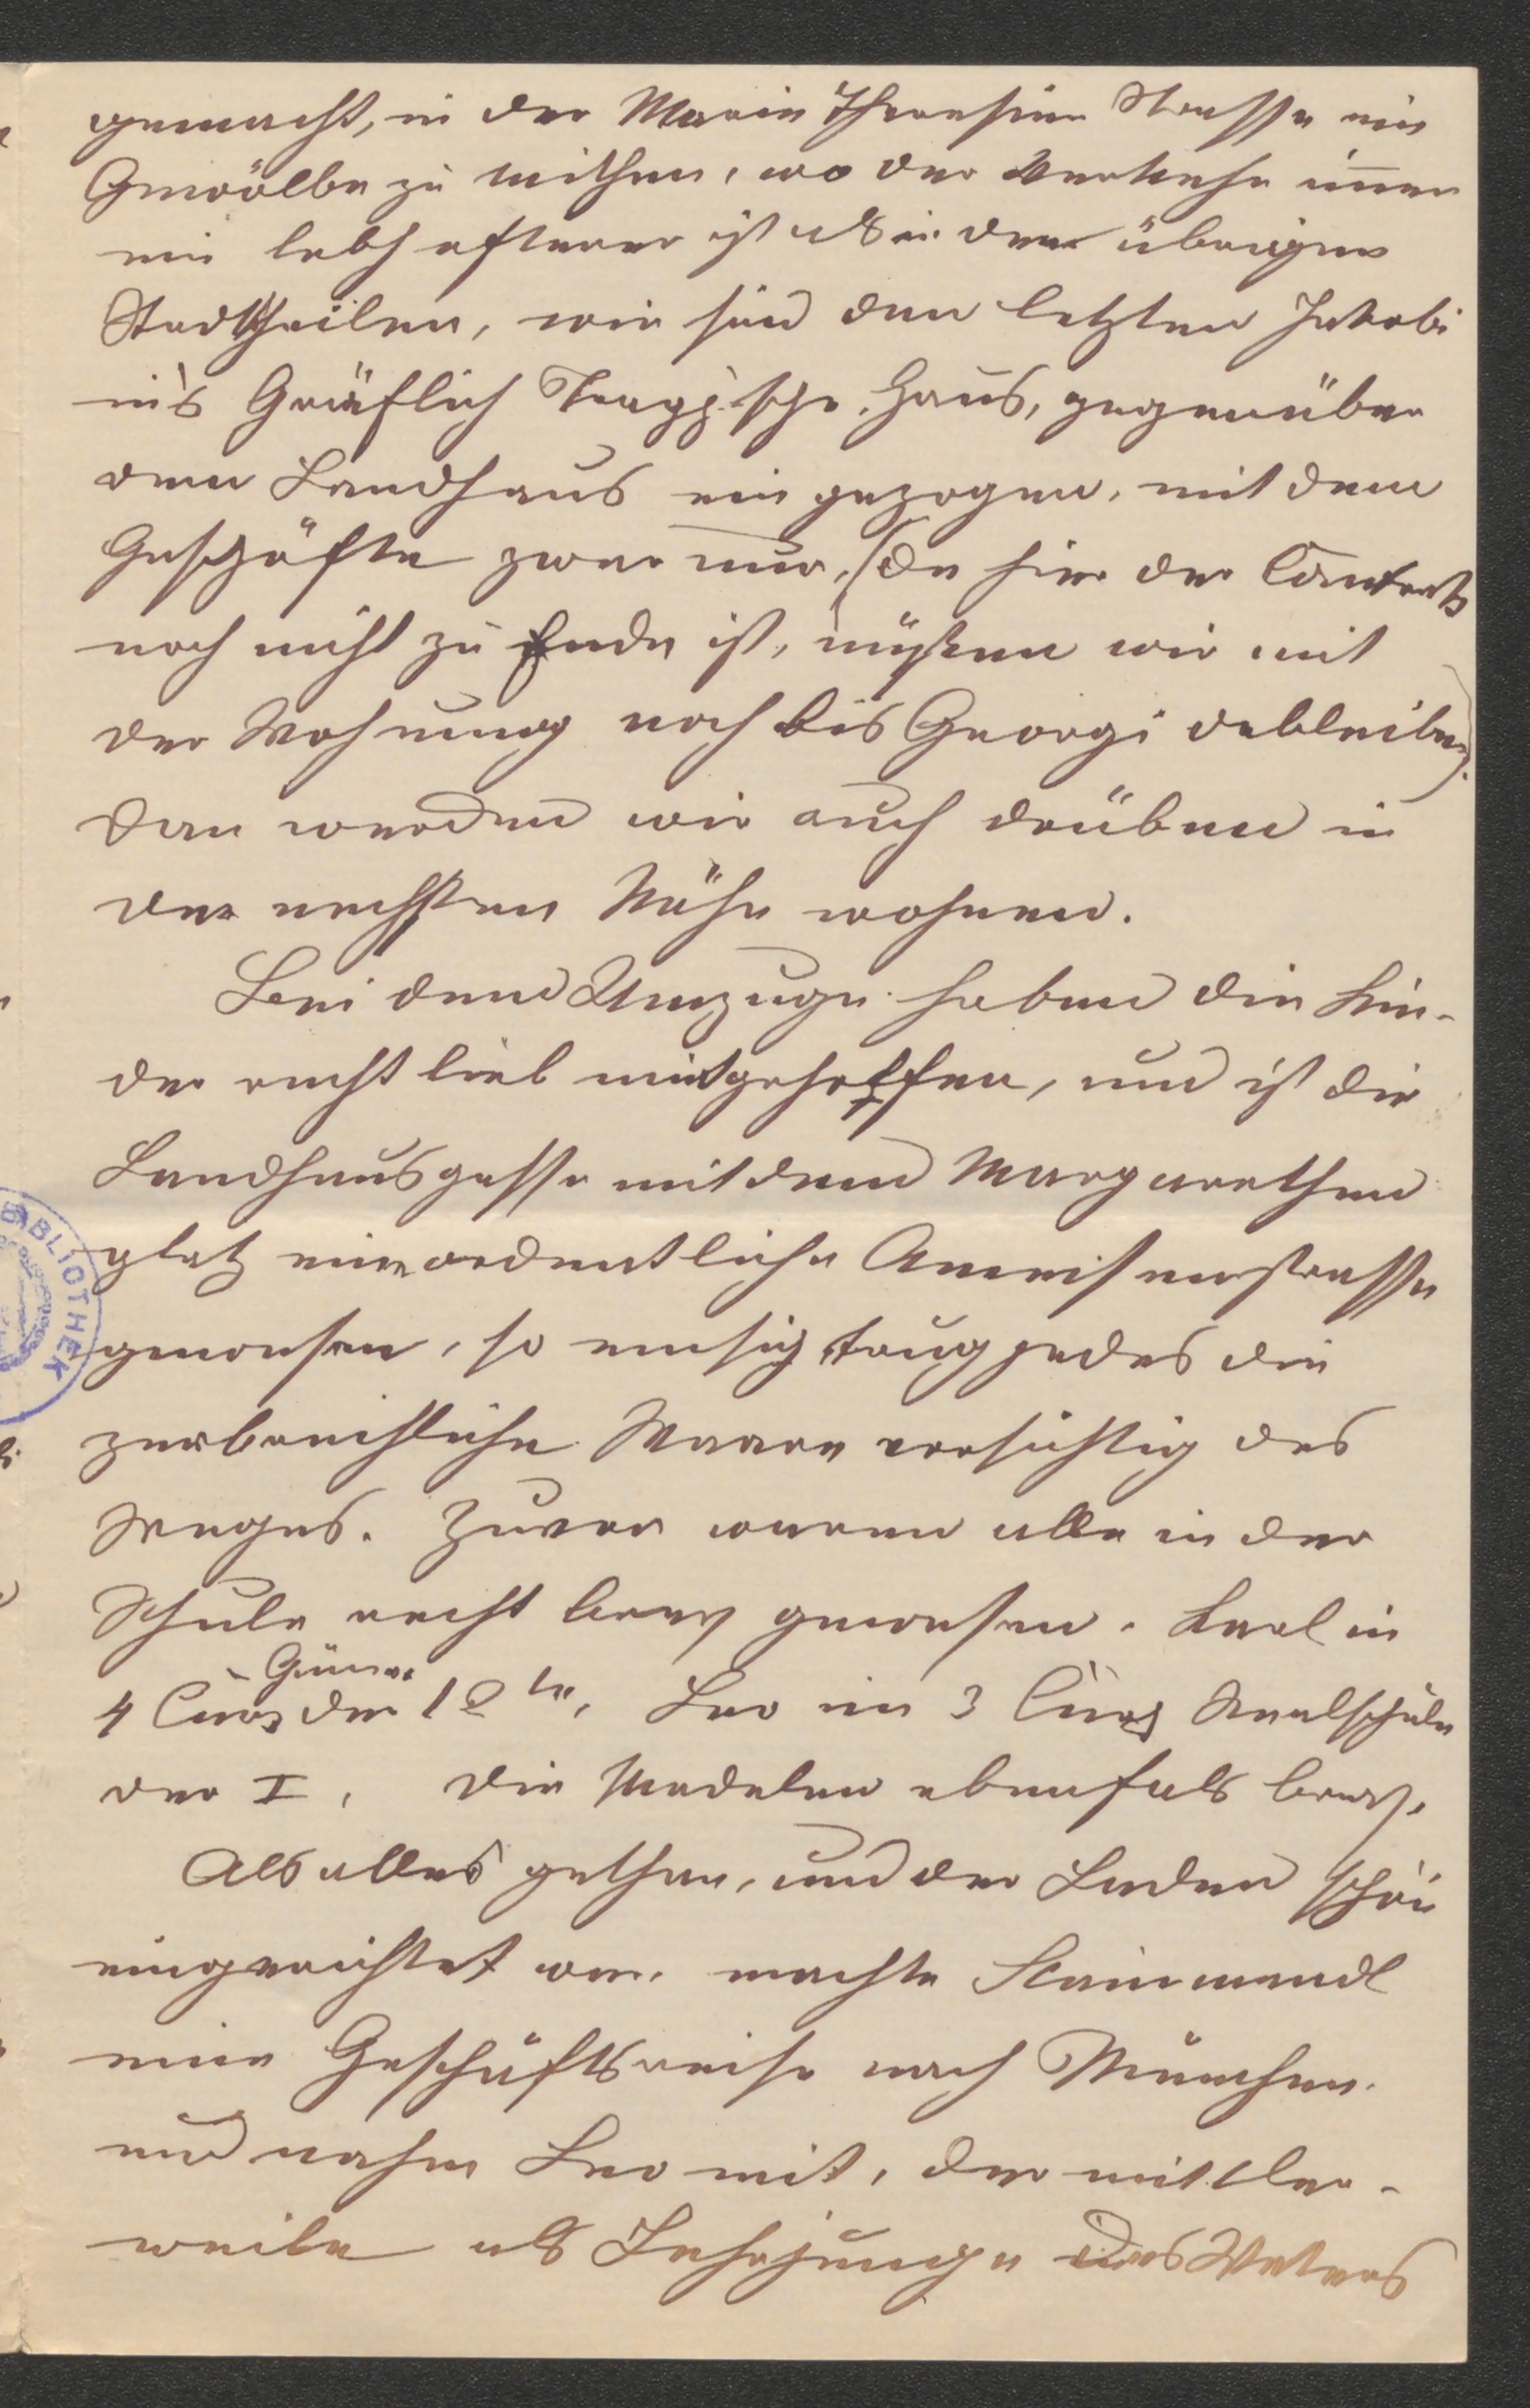 gemacht, in der Maria Theresien Strasse ein
Gewölbe zu miethen, wo der Verkehr imer
ein lebhafterer ist als in den übrigen
Stadttheilen, wir sind den letzten Jakobi
in's Gräflich Trapp'sche Haus, gegenüber
dem Landhaus eingezogen, mit dem
Geschäfte zwar nur, (da hier der Contrakt
noch nicht zu Ende ist, müßen wir mit
der Wohnung noch bis Georgi dableiben).
Dan werden wir auch drüben in
der nechsten Nähe wohnen.
Bei dem Umzuge haben die Kin-
der recht lieb mitgeholfen, und ist die
Landhausgasse mit dem Margarethen
platz eine ordentliche Ameisenstrasse
gewesen, so emsig trug jedes die
zerbrechliche Waare vorsichtig des
Weges. Zuvor waren alle in der
Schule recht brav gewesen. Karl in
Gimn.
4 Curs der 10te, Leo im 3 Curs Realschule
der I, die Madelen ebenfals brav.
Als alles gethan, und der Laden schön
eingerichtet war, machte Steinmandl
eine Geschäftsreise nach München
und nahm Leo mit, der mittler-
weile als Lehrjunge des Vaters
BIBLIOTHEK